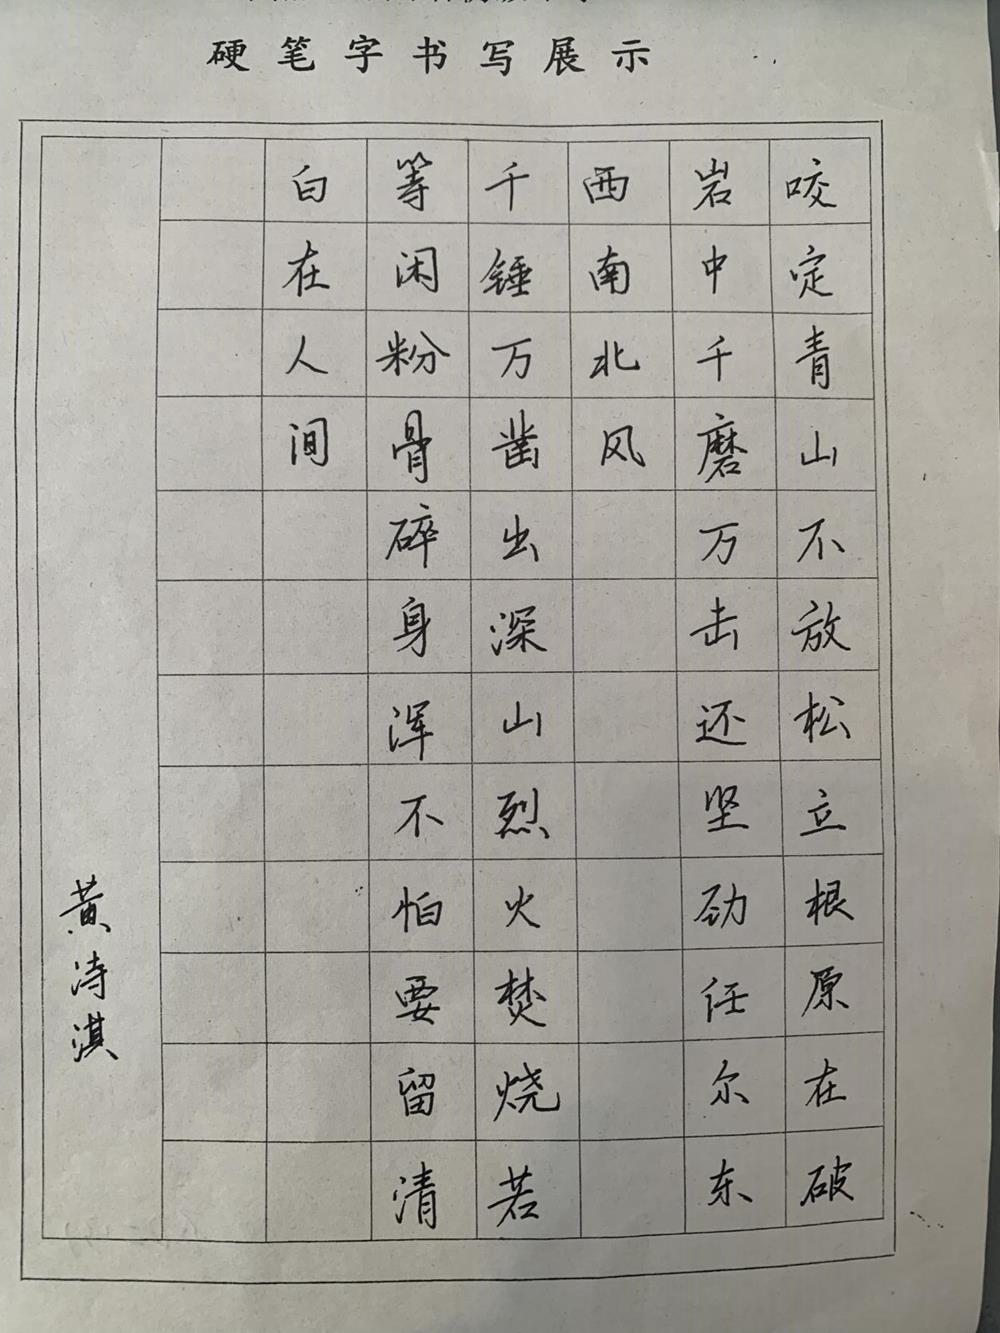 硬笔字书写展示
咬定青山不放松立根原在破
岩中千磨万击还坚劲任尔东
西南北风
千锤万凿出深山烈火焚烧若
等闲粉骨碎身浑不怕要留清
白在人间
黄诗淇